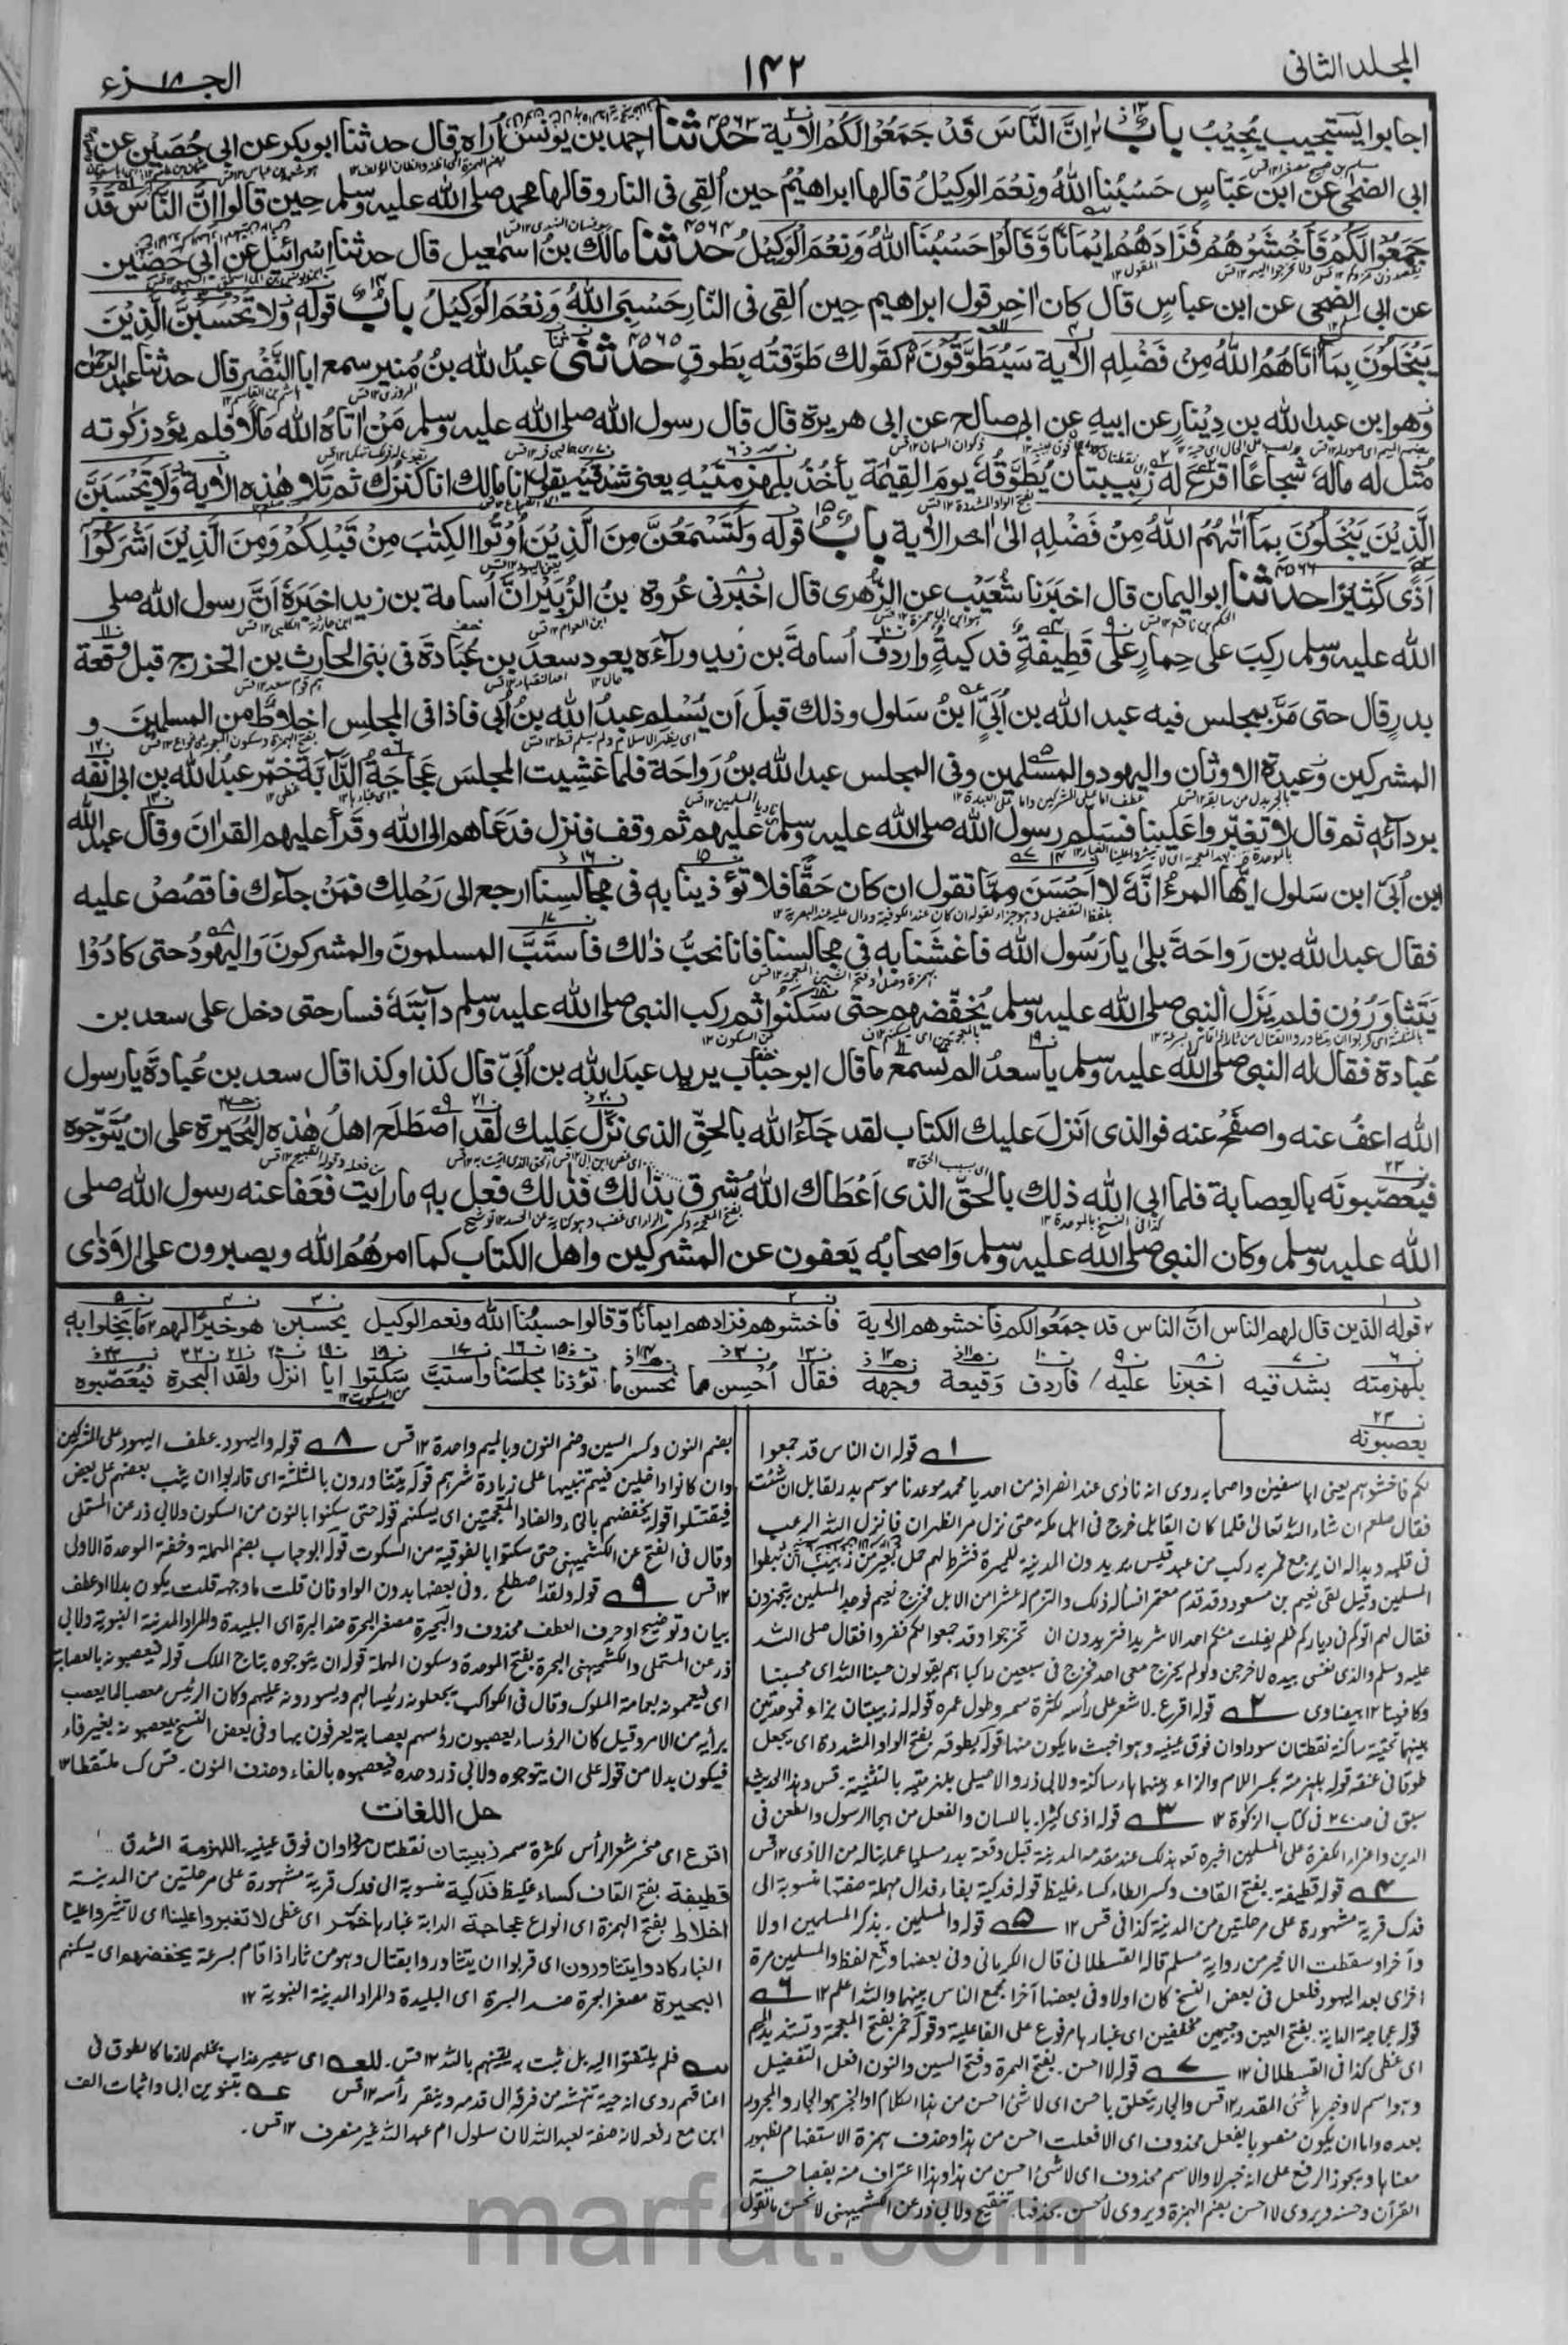 المجلد الثانی
١٤٢
الجزء ١٨
اجابوا یستجیب یُجِیْبُ باب اِنَّ النَّاسَ قَدْ جَمَعُوْا لَکُمْ الاٰیة ٤٥٦٣ حدثنا احمد بن یونس اُراہ قال حدثنا ابو بکر عن ابی حُصَیْن عن
ابی الضحٰی عن ابن عَبَّاسٍ حَسْبُنَا اللّٰهُ وَنِعْمَ الْوَکِیْلُ قالها ابراهیمُ حین اُلقِی فی النار وقالها محمد صلی الله علیه وسلم حِین قالوا اِنَّ النَّاسَ قَدْ
جَمَعُوْا لَکُمْ فَاخْشَوْهُمْ فَزَادَهُمْ اِیْمَانًا وَّقَالُوْا حَسْبُنَا اللّٰهُ وَنِعْمَ الْوَکِیْلُ ٤٥٦٤ حدثنا مالك بنُ اسمٰعیل قال حدثنا اسْرائیل عن ابی حَصین
عن ابی الضحی عن ابن عباسٍ قال کان اٰخِر قول ابراهیم حِین اُلقِی فی النَّارِ حَسْبِیَ اللّٰهُ وَنِعْمَ الْوَکِیْلُ باب قوله وَلَا تَحْسَبَنَّ الَّذِیْنَ
یَبْخَلُوْنَ بِمَا اٰتَاهُمُ اللّٰهُ مِنْ فَضْلِهٖ الاٰیة سَیُطَوَّقُوْنَ کقولك طَوَّقتُه بِطَوقٍ ٤٥٦٥ حدثنی عبدُ الله بنُ مُنیر سمع ابا النَّضْر قال حدثنا عبد الرحمٰن
وهو ابن عبد الله بن دِیْنارٍ عن ابیهِ عن ابی صالح عن ابی هریرة قال قال رسول الله صلی الله علیه وسلم مَنْ اٰتاہُ الله مَالًا فلم یؤد زکٰوته
مُثل له مالهٗ شُجاعًا اقرعَ له زَبِیبتان یُطَوَّقُهٗ یومَ القِیٰمَة یأخُذُ بلِهزمتَیْهِ یعنی شدقَیْهِ یقول انا مالك انا کنزُك ثم تلا هٰذه الاٰیة وَلَا تَحْسَبَنَّ
الَّذِیْنَ یَبْخَلُوْنَ بِمَا اٰتٰهُمُ اللّٰهُ مِنْ فَضْلِهٖ الی اٰخر الاٰیة باب قوله وَلَتَسْمَعُنَّ مِنَ الَّذِیْنَ اُوْتُوا الْکِتٰبَ مِنْ قَبْلِکُمْ وَمِنَ الَّذِیْنَ اَشْرَکُوْا
اَذًی کَثِیْرًا ٤٥٦٦ حدثنا ابو الیمان قال اخبَرَنا شُعَیْب عن الزُّهری قال اخبرنی عُروة بنُ الزُّبَیْرِ اَنَّ اُسامة بن زید اخبَرَهٗ اَنَّ رسول الله صلی
الله علیه وسلم رکِبَ علی حِمارٍ علی قَطِیفةٍ فدکیةٍ واردفَ اُسامةَ بن زید وراءَه یعود سعدَ بن عُبَادَةَ فی بَنی الحارث بن الخزرج قبل وقعة
بدرٍ قال حتی مَرَّ بمجلس فیه عبد الله بن اُبَیٍّ ابنُ سَلول وذلك قبلَ اَن یُسْلِم عبدُ الله بنُ اُبی فاذا فی المجلِس اخلاطٌ من المسلمین و
المشرکین وعبدة الاوثان والیهود والمسلمین وفی المجلس عبد الله بنُ رَواحة فلما غَشِیت المجلسَ عَجاجَةُ الدَّابَّة خَمَّر عبدُ الله بن ابی انفَه
بردائهٖ ثم قال لا تغبِّروا عَلَینا فسَلَّم رسول الله صلی الله علیه وسلم علیهم ثم وقف فنزل فدَعَاهم الی الله وقرأ علیهم القراٰنَ وقال عبد الله
ابن اُبَیّ ابن سَلول ایُّها المرءُ انَّهٗ لا اَحْسَنَ مِمَّا تقول ان کان حَقًّا فلا تؤذینا به فی مجالسنا ارجع الی رَحْلِك فمَنْ جاءَك فاقصُص علیه
فقال عبد الله بن رَواحَةَ بلٰی یا رَسُول الله فاغشَنا به فی مجالسنا فانا نحبُّ ذٰلك فاستَبَّ المسلمونَ والمشرکونَ وَالیهودُ حتی کادُوْا
یَتَثَاوَرُوْن فلم یَزَل النبی صلی الله علیه وسلم یُخفِّضهم حتی سَکَنُوْا ثم رکب النبی صلی الله علیه وسلم دابَّتهٗ فسار حتی دخل علی سعد بن
عُبادة فقال له النبی صلی الله علیه وسلم یا سعدُ الم تسمع ما قال ابو حُباب یرید عبدَ الله بن اُبَیّ قال کذا وکذا قال سعد بن عُبادَةَ یا رسول
الله اعفُ عنه واصفَحْ عنه فوالذی اَنزلَ علیك الکتاب لقد جَاءَ الله بالحقِّ الذی نزَّلَ عَلیك لَقَد اصْطَلَحَ اهلُ هٰذه البُحَیرة علی ان یُتَوِّجوہ
فیُعَصِّبونَه بالعِصابة فلما ابی الله ذلك بالحَقِّ الذی اَعْطَاك اللّٰهُ شرِقَ بذٰلك فذٰلك فعل به ما رایت فعَفَا عنه رسول الله صلی
الله علیه وسلم وکان النبی صلی الله علیه وسلم وَاصحابُه یَعفون عن المشرکین واهل الکتاب کما امرهُمُ الله ویصبرون علی الاَذٰی
قوله الذین قال لهم الناس انَّ الناس قد جمَعُوا لکم فاخشوهم الاٰیة فاخشوهم فزادهم ایمانًا وقالوا حسبُنا الله ونعم الوکیل یحسبن هو خیرًا لهم ما بخلوا به
بلهزمته بشدقیه اخبرنا علیه فاردف وَقیعة وجهه فقال اُحْسِن نحسن ما تؤذنا مجلسنا واستبَّ سکتوا ایا انزل ولقد البحرة فیُعَصِّبوه
یعصبونه
١ قوله ان الناس قد جمعوا
لکم فاخشوهم یعنی ابا سفیٰن واصحابه روی انه نادٰی عند انصرافه من احد یا محمد موعدنا موسم بدر لقابل ان شئت
فقال صلعم ان شاء الله تعالٰی فلما کان القابل خرج فی اهل مکة حتی نزل مر الظهران فانزل الله الرعب
فی قلبه وبدا له ان یرجع فمر به رکب من عبد قیس یریدون المدینة للمیرة فشرط لهم حمل بعیر من زبیب ان ثبطوا
المسلمین وقیل لقی نعیم بن مسعود وقد قدم معتمرا فسأله ذلك والتزم له عشرا من الابل فخرج نعیم فوجد المسلمین یتجهزون
فقال لهم اتوکم فی دیارکم فلم یفلت منکم احد الا شرید افتریدون ان تخرجوا وقد جمعوا لکم ففروا فقال صلی الله
علیه وسلم والذی نفسی بیده لاخرجن ولو لم یخرج معی احد فخرج فی سبعین راکبا هم یقولون حسبنا الله ای محسبنا
وکافینا ١٢ بیضاوی ٢ قوله اقرع۔ لا شعر علی رأسه لکثرة سمه وطول عمره قوله له زبیبتان بزاء فموحدتین
بینهما تحتیة ساکنة نقطتان سوداوان فوق عینیه وهو اخبث ما یکون منها قوله یطوقه بفتح الواو المشددة ای یجعل
طوقا فی عنقه قوله بلهزمته بکسر اللام والزاء بینهما هاء ساکنة ولابی ذر والاصیلی بلهزمتیه بالتثنیة۔ قس وهذا الحدیث
سبق فی ص فی کتاب الزکٰوة ١٢ ٣ قوله اذی کثیرا۔ باللسان والفعل من هجا الرسول والطعن فی
الدین واغراء الکفرة علی المسلمین اخبره تعالی بذلك عند مقدمه المدینة قبل وقعة بدر مسلیا عما یناله من الاذی ١٢ قس
٤ قوله قطیفة۔ بفتح القاف وکسر الطاء کساء غلیظ قوله فدکیة بفاء فدال مهملة صفتها منسوبة الی
فدك قریة مشهورة علی مرحلتین من المدینة کذا فی قس ١٢ ٥ قوله والمسلمین۔ بذکر المسلمین اولا
وآخرا وسقطت الاخیر من روایة مسلم قاله القسطلانی قال الکرمانی وفی بعضها وقع لفظ والمسلمین مرة
اخری بعد الیهود فلعل فی بعض النسخ کان اولا وفی بعضها آخرا فجمع الناس بینهما والله اعلم ١٢ ٦
قوله عجاجة الدابة۔ بفتح العین وجیمین مخففین ای غبارها مرفوع علی الفاعلیة وقوله خمر بفتح المعجمة وتشدید المیم
ای غطی کذا فی القسطلانی ١٢ ٧ قوله لا احسن۔ بفتح الهمزة وفتح السین والنون افعل التفضیل
وهو اسم لا وخبرها شیٔ المقدر ١٢ قس والجار یتعلق باحسن ای لا شیٔ احسن من هذا الکلام او الخبر هو الجار والمجرور
بعده واما ان یکون منصوبا بفعل محذوف ای الا فعلت احسن من هذا وحذف همزة الاستفهام لظهور
معناها ویجوز الرفع علی انه خبر لا والاسم محذوف ای لا شیٔ احسن من هذا وهذا اعتراف منه بفصاحة
القرآن وحسنه ویروی لا احسن بضم الهمزة ویروی لأحسن بحذفها۔ تنقیح ولابی ذر عن الکشمیهنی لا نحسن ما تقول
بضم النون وکسر السین وضم النون وبالمیم واحدة ١٢ قس ٨ قوله والیهود۔ عطف الیهود علی المشرکین
وان کانوا داخلین فیهم تنبیها علی زیادة شرهم قوله یتثاورون بالمثلثة ای قاربوا ان یثب بعضهم علی بعض
فیقتتلوا قوله یخفضهم بالخاء والضاد المعجمتین ای یسکنهم قوله حتی سکنوا بالنون من السکون ولابی ذر عن المستملی
وقال فی الفتح عن الکشمیهنی حتی سکتوا بالفوقیة من السکوت قوله ابو حباب بضم المهملة وخفة الموحدة الاولی
١٢ قس ٩ قوله ولقد اصطلح۔ وفی بعضها بدون الواو فان قلت ما وجهه قلت یکون بدلا او عطف
بیان وتوضیح او حرف العطف محذوف والبحیرة مصغر البحرة ضد البرة ای البلیدة والمراد المدینة النبویة ولابی
ذر عن المستملی والکشمیهنی البحرة بفتح الموحدة وسکون المهملة قوله ان یتوجوه بتاج الملك قوله فیعصبونه بالعصابة
ای فیعممونه بعمامة الملوك وقال فی الکواکب یجعلونه رئیسا لهم ویسودونه علیهم وکان الرئیس معصبا لما یعصب
برأیه من الامر وقیل کان الرؤساء یعصبون رؤسهم بعصابة یعرفون بها وفی بعض النسخ یعصبونه بغیر فاء
فیکون بدلا من قوله علی ان یتوجوه ولابی ذر وحده فیعصبوه بالفاء وحذف النون۔ قس ك ملتقطا ١٢
حل اللغات
اقرع ای منحسر شعر الرأس لکثرة سمه زبیبتان نقطتان سوداوان فوق عینیه۔ اللهزمة الشدق
قطیفة بفتح القاف کساء غلیظ فدکیة منسوبة الی فدك قریة مشهورة علی مرحلتین من المدینة
اخلاط بفتح الهمزة ای انواع عجاجة الدابة غبارها خمّر ای غطی لا تغبروا علینا ای لا تثیروا علینا
الغبار کادوا یتثاورون ای قربوا ان یتثاوروا بقتال وهو من ثار اذا قام بسرعة یخفضهم ای یسکنهم
البحیرة مصغر البحرة ضد البرة ای البلیدة والمراد المدینة النبویة ١٢
فلم یلتفتوا الیه بل ثبت به یقینهم بالله ١٢ قس۔ للعه ای سیصیر عذاب بخلهم لازما کالطوق فی
اعناقهم روی انه حیة تنهشه من فرقه الی قدمه وینقر رأسه ١٢ قس عه بتنوین ابی واثبات الف
ابن مع رفعه لانه صفة لعبد الله لان سلول ام عبد الله غیر منصرف ١٢ قس۔
marfat.com